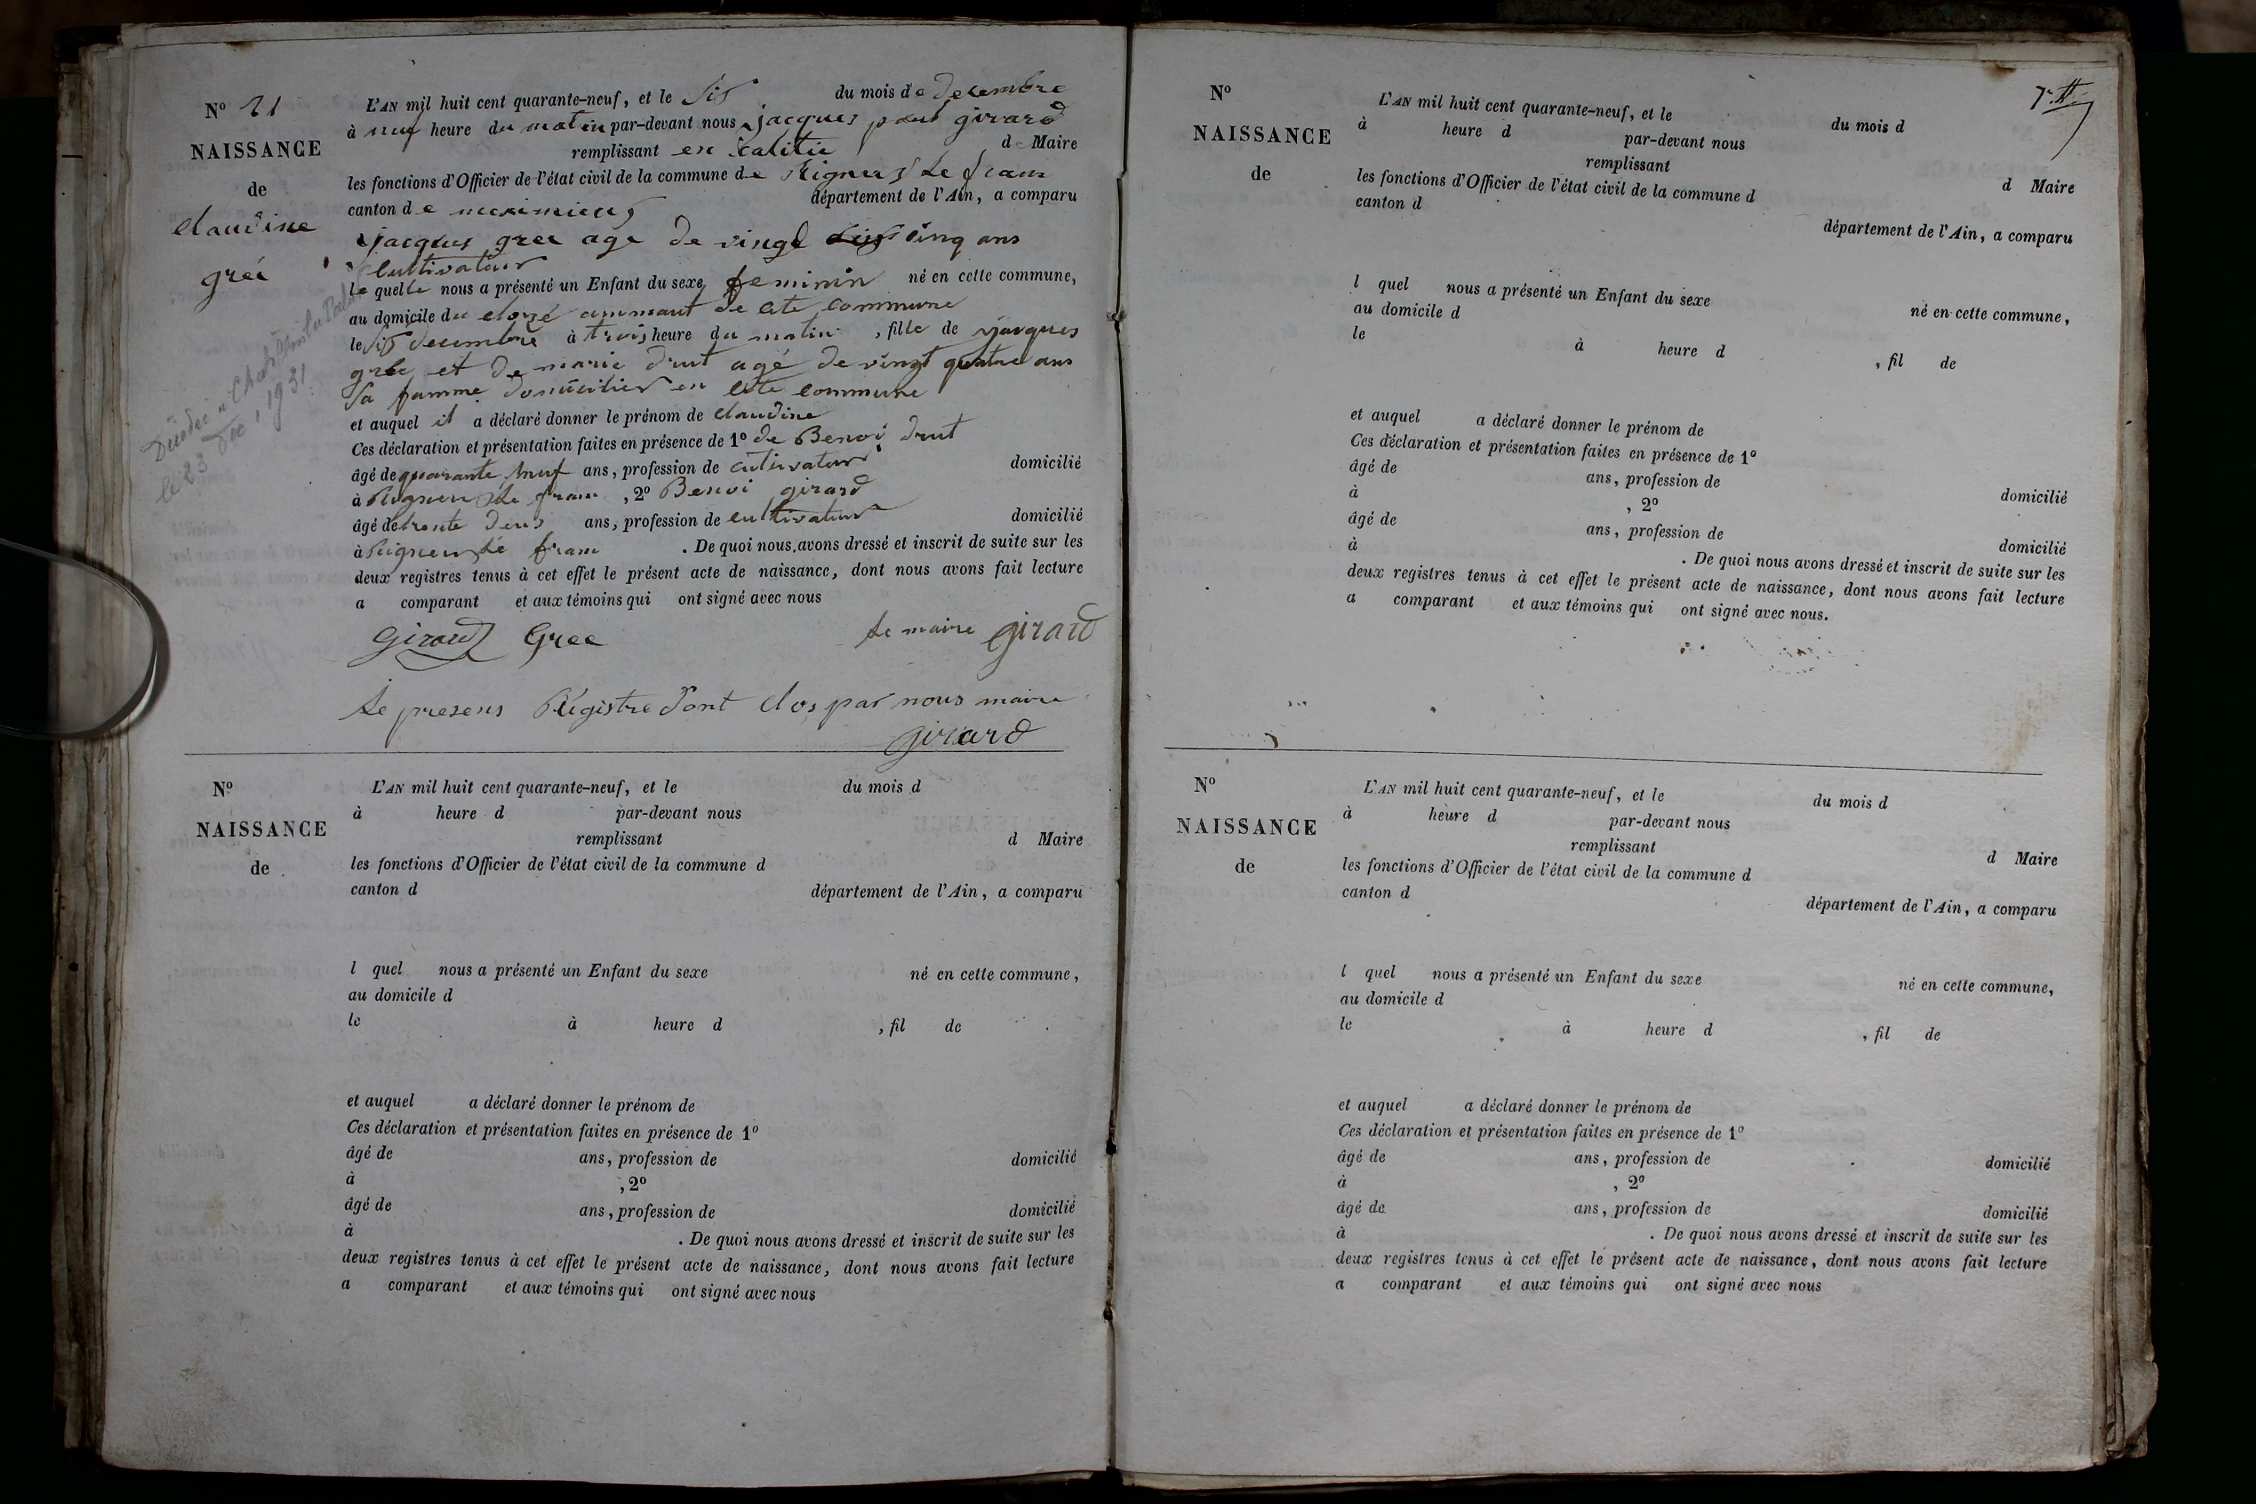 Nº 21
NAISSANCE
de
claudine
greé
Décédée à
le 23 Déc 1931
L'AN mil huit cent quarante-neuf, et le sis du mois de decembre
à neuf heure du matin par-devant nous jacques paul girard
remplissant en calitié d Maire
les fonctions d'Officier de l'état civil de la commune de Rigneus le fran
canton de meximieus département de l'Ain, a comparu
jacques gree age de vingt cinq ans
cultivateur
le quelle nous a présenté un Enfant du sexe feminin né en cette commune,
au domicile du de cete commune
le sis decembre à trois heure du matin, fille de jacques
gree et de marie drut agé de vingt quatre ans
sa famme domicilier en cete commune
et auquel il a déclaré donner le prénom de claudine
Ces déclaration et présentation faites en présence de 1º de Benoi drut
âgé de quarante neuf ans, profession de cultivateur domicilié
à Rigneus le fran, 2º Benoi girard
âgé de trente deus ans, profession de cultivateur domicilié
à Rigneus le fran. De quoi nous avons dressé et inscrit de suite sur les
deux registres tenus à cet effet le présent acte de naissance, dont nous avons fait lecture
a comparant et aux témoins qui ont signé avec nous
Girard Gree le maire girard
le presens Registre sont clos par nous maire
girard
Nº
NAISSANCE
de
L'AN mil huit cent quarante-neuf, et le du mois d
à heure d par-devant nous
remplissant d Maire
les fonctions d'Officier de l'état civil de la commune d
canton d département de l'Ain, a comparu
l quel nous a présenté un Enfant du sexe né en cette commune,
au domicile d
le à heure d , fil de
et auquel a déclaré donner le prénom de
Ces déclaration et présentation faites en présence de 1º
âgé de ans, profession de domicilié
à , 2º
âgé de ans, profession de domicilié
à . De quoi nous avons dressé et inscrit de suite sur les
deux registres tenus à cet effet le présent acte de naissance, dont nous avons fait lecture
a comparant et aux témoins qui ont signé avec nous
Nº
NAISSANCE
de
L'AN mil huit cent quarante-neuf, et le du mois d
à heure d par-devant nous
remplissant d Maire
les fonctions d'Officier de l'état civil de la commune d
canton d département de l'Ain, a comparu
l quel nous a présenté un Enfant du sexe né en cette commune,
au domicile d
le à heure d , fil de
et auquel a déclaré donner le prénom de
Ces déclaration et présentation faites en présence de 1º
âgé de ans, profession de domicilié
à , 2º
âgé de ans, profession de domicilié
à . De quoi nous avons dressé et inscrit de suite sur les
deux registres tenus à cet effet le présent acte de naissance, dont nous avons fait lecture
a comparant et aux témoins qui ont signé avec nous.
Nº
NAISSANCE
de
L'AN mil huit cent quarante-neuf, et le du mois d
à heure d par-devant nous
remplissant d Maire
les fonctions d'Officier de l'état civil de la commune d
canton d département de l'Ain, a comparu
l quel nous a présenté un Enfant du sexe né en cette commune,
au domicile d
le à heure d , fil de
et auquel a déclaré donner le prénom de
Ces déclaration et présentation faites en présence de 1º
âgé de ans, profession de domicilié
à , 2º
âgé de ans, profession de domicilié
à . De quoi nous avons dressé et inscrit de suite sur les
deux registres tenus à cet effet le présent acte de naissance, dont nous avons fait lecture
a comparant et aux témoins qui ont signé avec nous